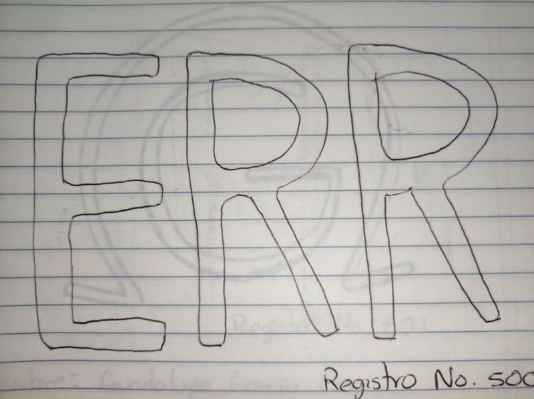 ERR
Registro No. 500